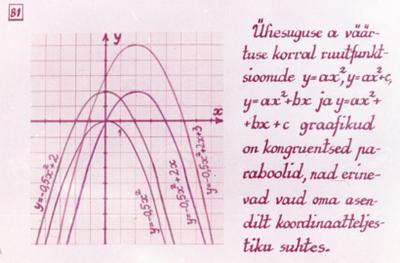 81
y
x
1
y=-0,5x²+2
y=-0,5x²
y=-0,5x²+2x
y=-0,5x²+2x+3
Ühesuguse a väär-
tuse korral ruutfunkt-
sioonide y=ax², y=ax²+c,
y=ax²+bx ja y=ax²+
+bx+c graafikud
on kongruentsed pa-
raboolid, nad erine-
vad vaid oma asen-
dilt koordinaatteljes-
tiku suhtes.